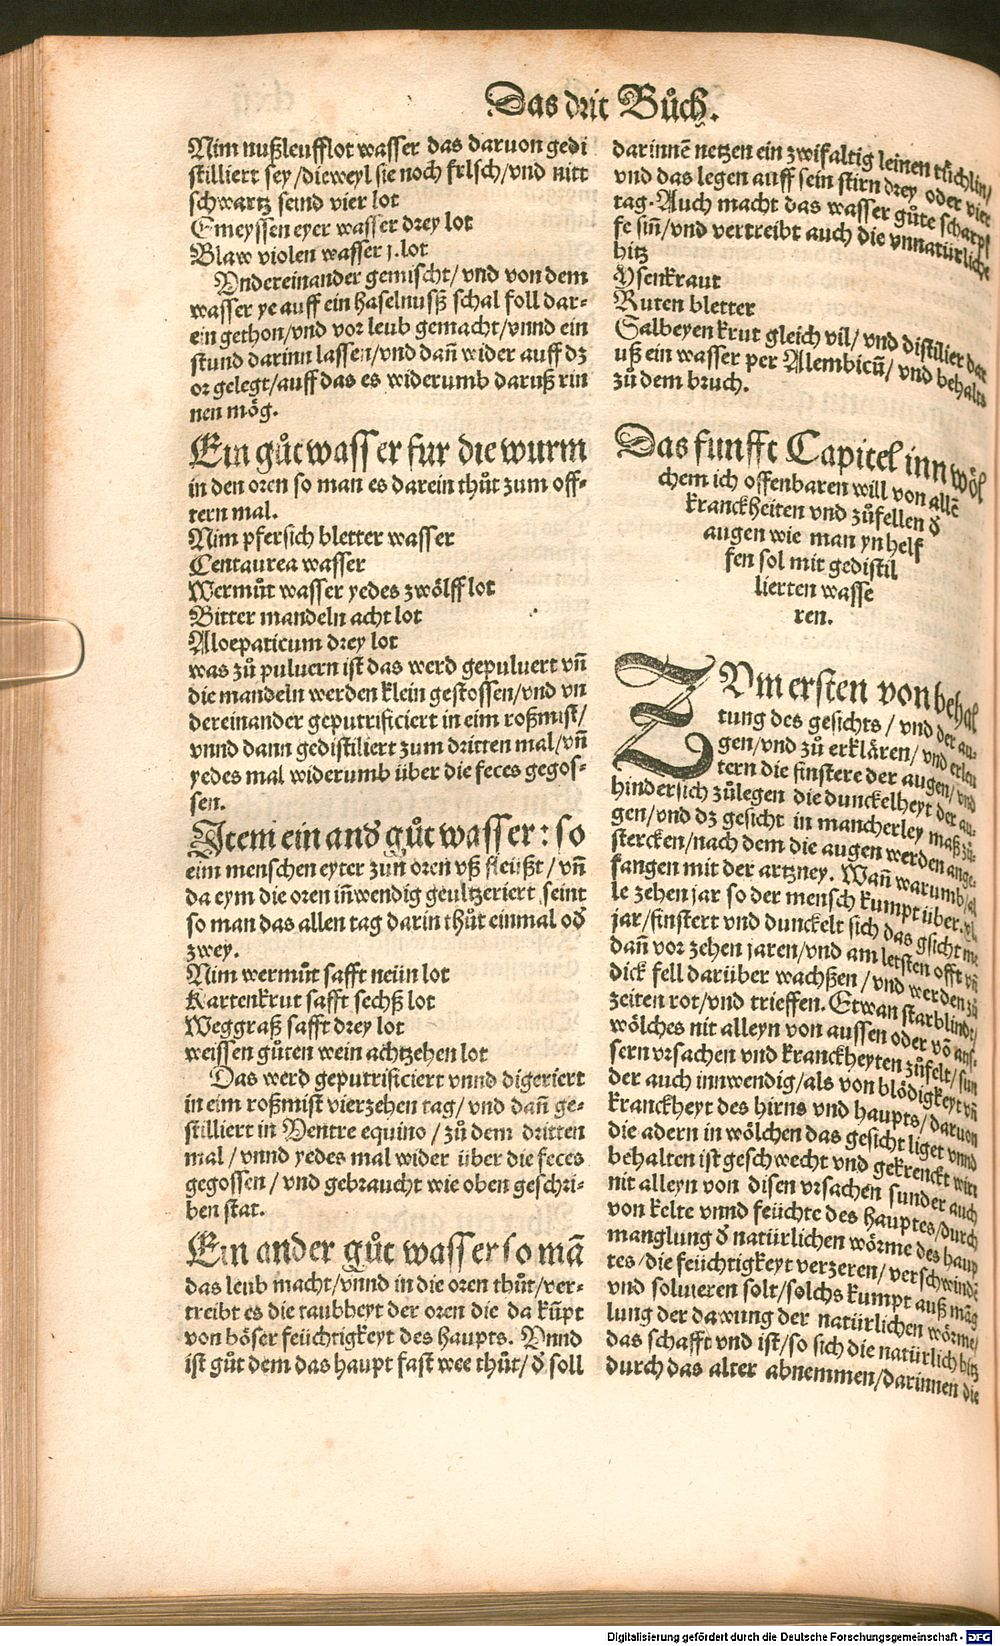 Das drit Bůch.
Nim nußleufflot wasser das daruon gedi
stilliert sey /dieweyl sie noch frlsch/vnd nitt
schwartz seind vier lot
Emeyssen eyer wasser drey lot
Blaw violen wasser j. lot
Vndereinander gemischt/ vnd von dem
wasser ye auff ein haselnusß schal foll dar-
ein gethon/vnd vor leub gemacht/vnnd ein
stund darinn lassen/vnd dañ wider auff dz
or gelegt/auff das es widerumb daruß rin
nen mög.
Ein gůt wasser fur die wurm
in den oren so man es darein thůt zum off-
tern mal.
Nim pfersich bletter wasser
Centaurea wasser
Wermůt wasser yedes zwölff lot
Bitter mandeln acht lot
Aloepaticum drey lot
was zů puluern ist das werd gepuluert vñ
die mandeln werden klein gestossen/vnd vn
dereinander geputrificiert in eim roßmist/
vnnd dann gedistiliert zum dritten mal/vñ
yedes mal widerumb über die feces gegos-
sen.
Item ein andð gůt wasser: so
eim menschen eyter zun oren vß fleüßt / vñ
da eym die oren iñwendig geultzeriert seint
so man das allen tag darin thůt einmal oð
zwey.
Nim wermůt safft neün lot
Kartenkrut safft sechß lot
Weggraß safft drey lot
weissen gůten wein achtzehen lot
Das werd geputrificiert vnnd digeriert
in eim roßmist vierzehen tag/ vnd dañ ge-
stilliert in Ventre equino / zů dem dritten
mal / vnnd yedes mal wider über die feces
gegossen / vnd gebraucht wie oben geschri-
ben stat.
Ein ander gůt wasser so mã
das leub macht/vnnd in die oren thůt/ver-
treibt es die taubheyt der oren die da kũpt
von böser feüchtigkeyt des haupts. Vnnd
ist gůt dem das haupt fast wee thůt/ ð soll
darinnẽ netzen ein zwifaltig leinen tüchlin/
vnd das legen auff sein stirn drey oder vier
tag. Auch macht das wasser gůte scharpf
fe siñ/vnd vertreibt auch die vnnatürliche
hitz
Ysenkraut
Ruten bletter
Salbeyen krut gleich vil/ vnd distilier dar
uß ein wasser per Alembicũ/ vnd behalts
zů dem bruch.
Das funfft Capitel inn wöl
chem ich offenbaren will von allẽ
kranckheiten vnd zůfellen ð
augen wie man yn helf
fen sol mit gedistil
lierten wasse
ren.
ZVm ersten von behal
tung des gesichts / vnd der au-
gen/vnd zů erklären/ vnd erleu
tern die finstere der augen/ vnd
hindersich zůlegen die dunckelheyt der au-
gen/vnd dz gesicht in mancherley maß zů-
stercken/nach dem die augen werden ange-
fangen mit der artzney. Wañ warumb/al
le zehen jar so der mensch kumpt über. xl.
jar/finstert vnd dunckelt sich das gsicht me
dañ vor zehen jaren/vnd am letsten offt vñ
dick fell darüber wachßen / vnd werden zů
zeiten rot/vnd trieffen. Etwan starblindt/
wölches nit alleyn von aussen oder võ ans-
sern vrsachen vnd kranckheyten zůfelt/ sun
der auch innwendig/als von blödigkeyt vñ
kranckheyt des hirns vnd haupts/ daruon
die adern in wölchen das gesicht liget vnnd
behalten ist geschwecht vnd gekrenckt wirt
nit alleyn von disen vrsachen sunder auch
von kelte vnnd feüchte des hauptes/durch
manglung ð natürlichen wörme des haup
tes /die feüchtigkeyt verzeren/ verschwindẽ
vnd soluieren solt/solchs kumpt auß mãg
lung der dawung der natürlichen wörme/
das schafft vnd ist/so sich die natürlich hitz
durch das alter abnemmen/darinnen die
Digitalisierung gefördert durch die Deutsche Forschungsgemeinschaft - DFG